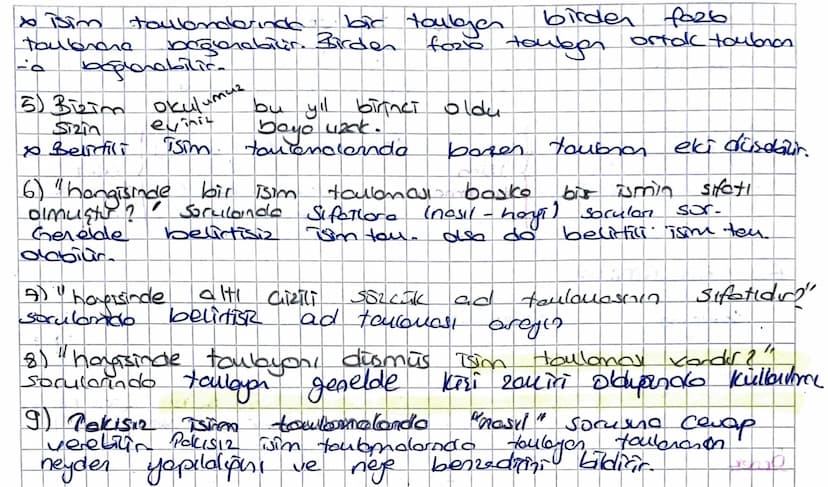 × İsim tamlamalarında bir tamlayan birden fazla
tamlanana bağlanabilir. Birden fazla tamlayan ortak tamlanan
-a bağlanabilir.
5) Bizim okulumuz bu yıl birinci oldu
Sizin eviniz baya uzak.
× Belirtili isim tamlamalarında bazen tamlanan eki düşebilir.
6) "hangisinde bir isim tamlaması başka bir ismin sıfatı
olmuştur?" sorularında sıfatlara (nasıl - hangi) soruları sor.
Genelde belirtisiz isim tam. olsa da belirtili isim tam.
olabilir.
7) "hangisinde altı çizili sözcük ad tamlamasının sıfatıdır?"
sorularında belirtisiz ad tamlaması arayın
8) "hangisinde tamlayanı düşmüş isim tamlaması vardır?"
sorularında tamlayan genelde kişi zamiri olduğunda kullanılır
9) Takısız isim tamlamalarında "nasıl" sorusuna cevap
verebilir. Takısız isim tamlamalarında tamlayan tamlananın
neyden yapıldığını ve neye benzediğini bildirir.